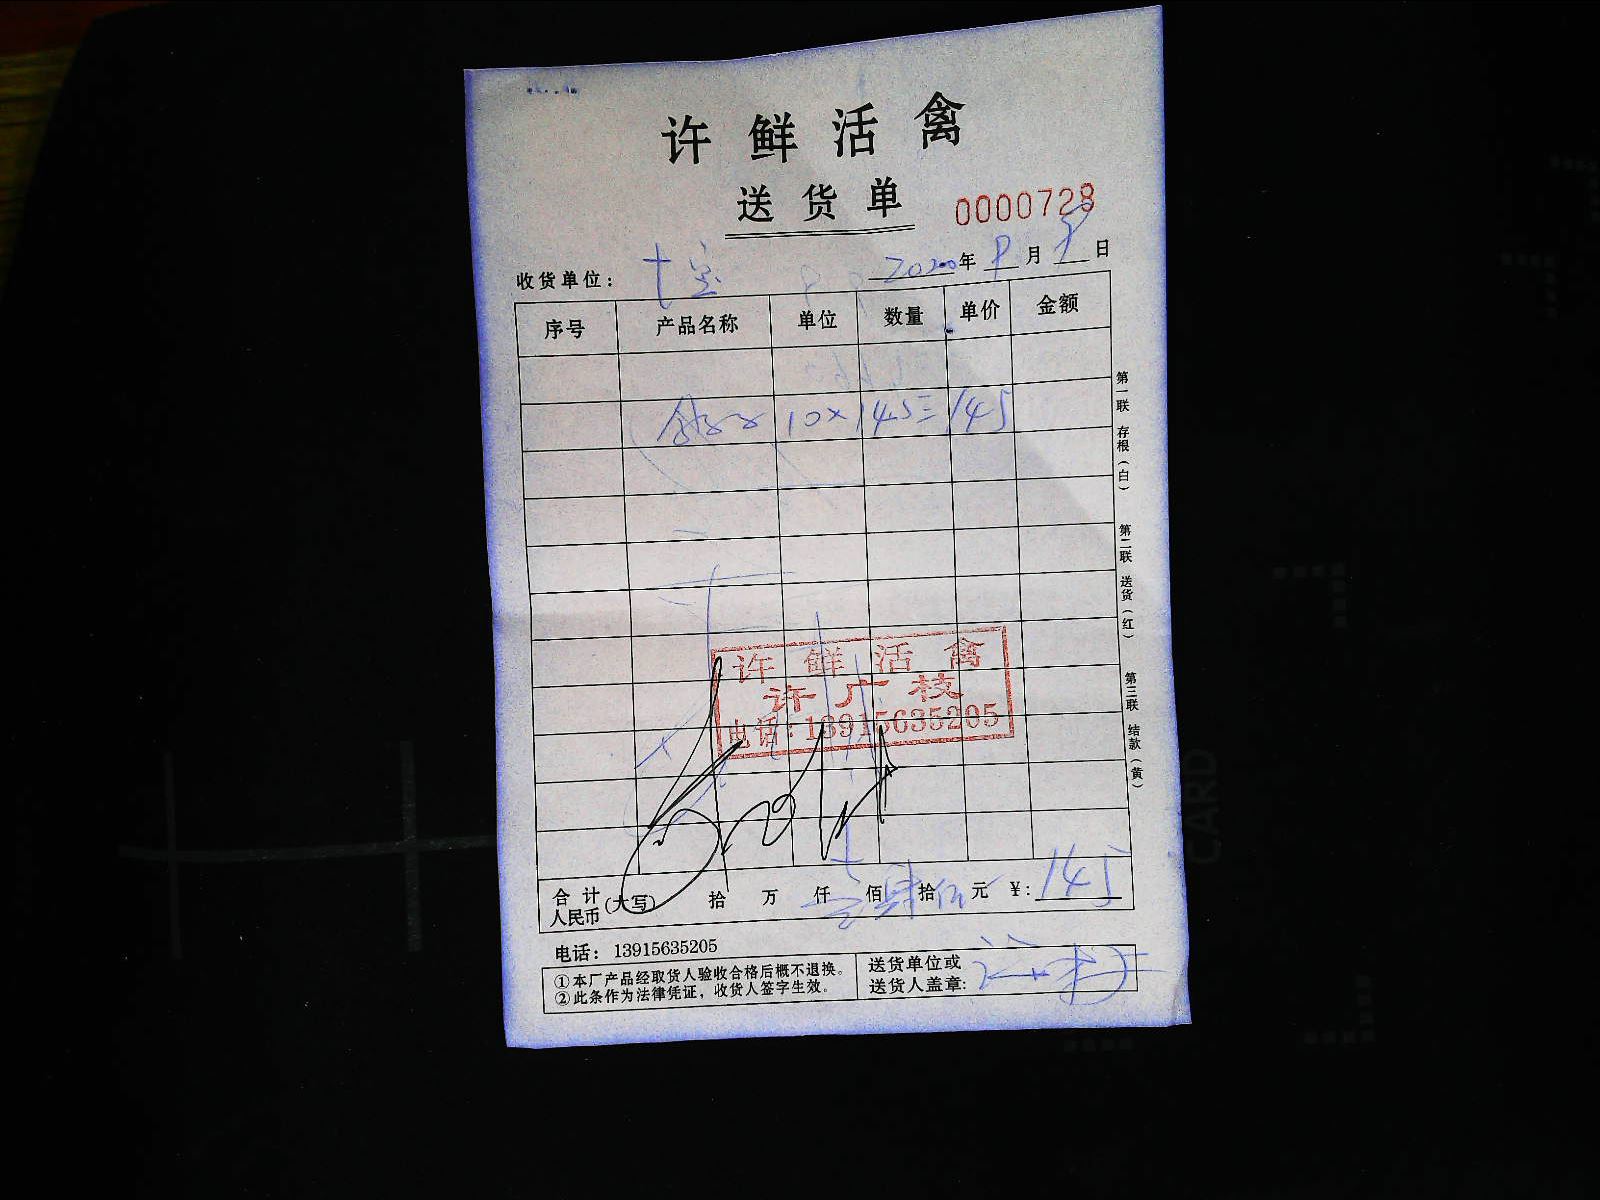 许鲜活禽
送货单 0000728
收货单位: 七宝 2020年 9月 9日
序号 产品名称 单位 数量 单价 金额
10×14.5=145
许鲜活禽
许广枝
电话:13915635205
合计人民币(大写) 拾 万 仟 壹佰肆拾伍元 ¥: 145
电话: 13915635205
①本厂产品经取货人验收合格后概不退换。
②此条作为法律凭证,收货人签字生效。
送货单位或
送货人盖章:
第一联 存根(白)
第二联 送货(红)
第三联 结款(黄)